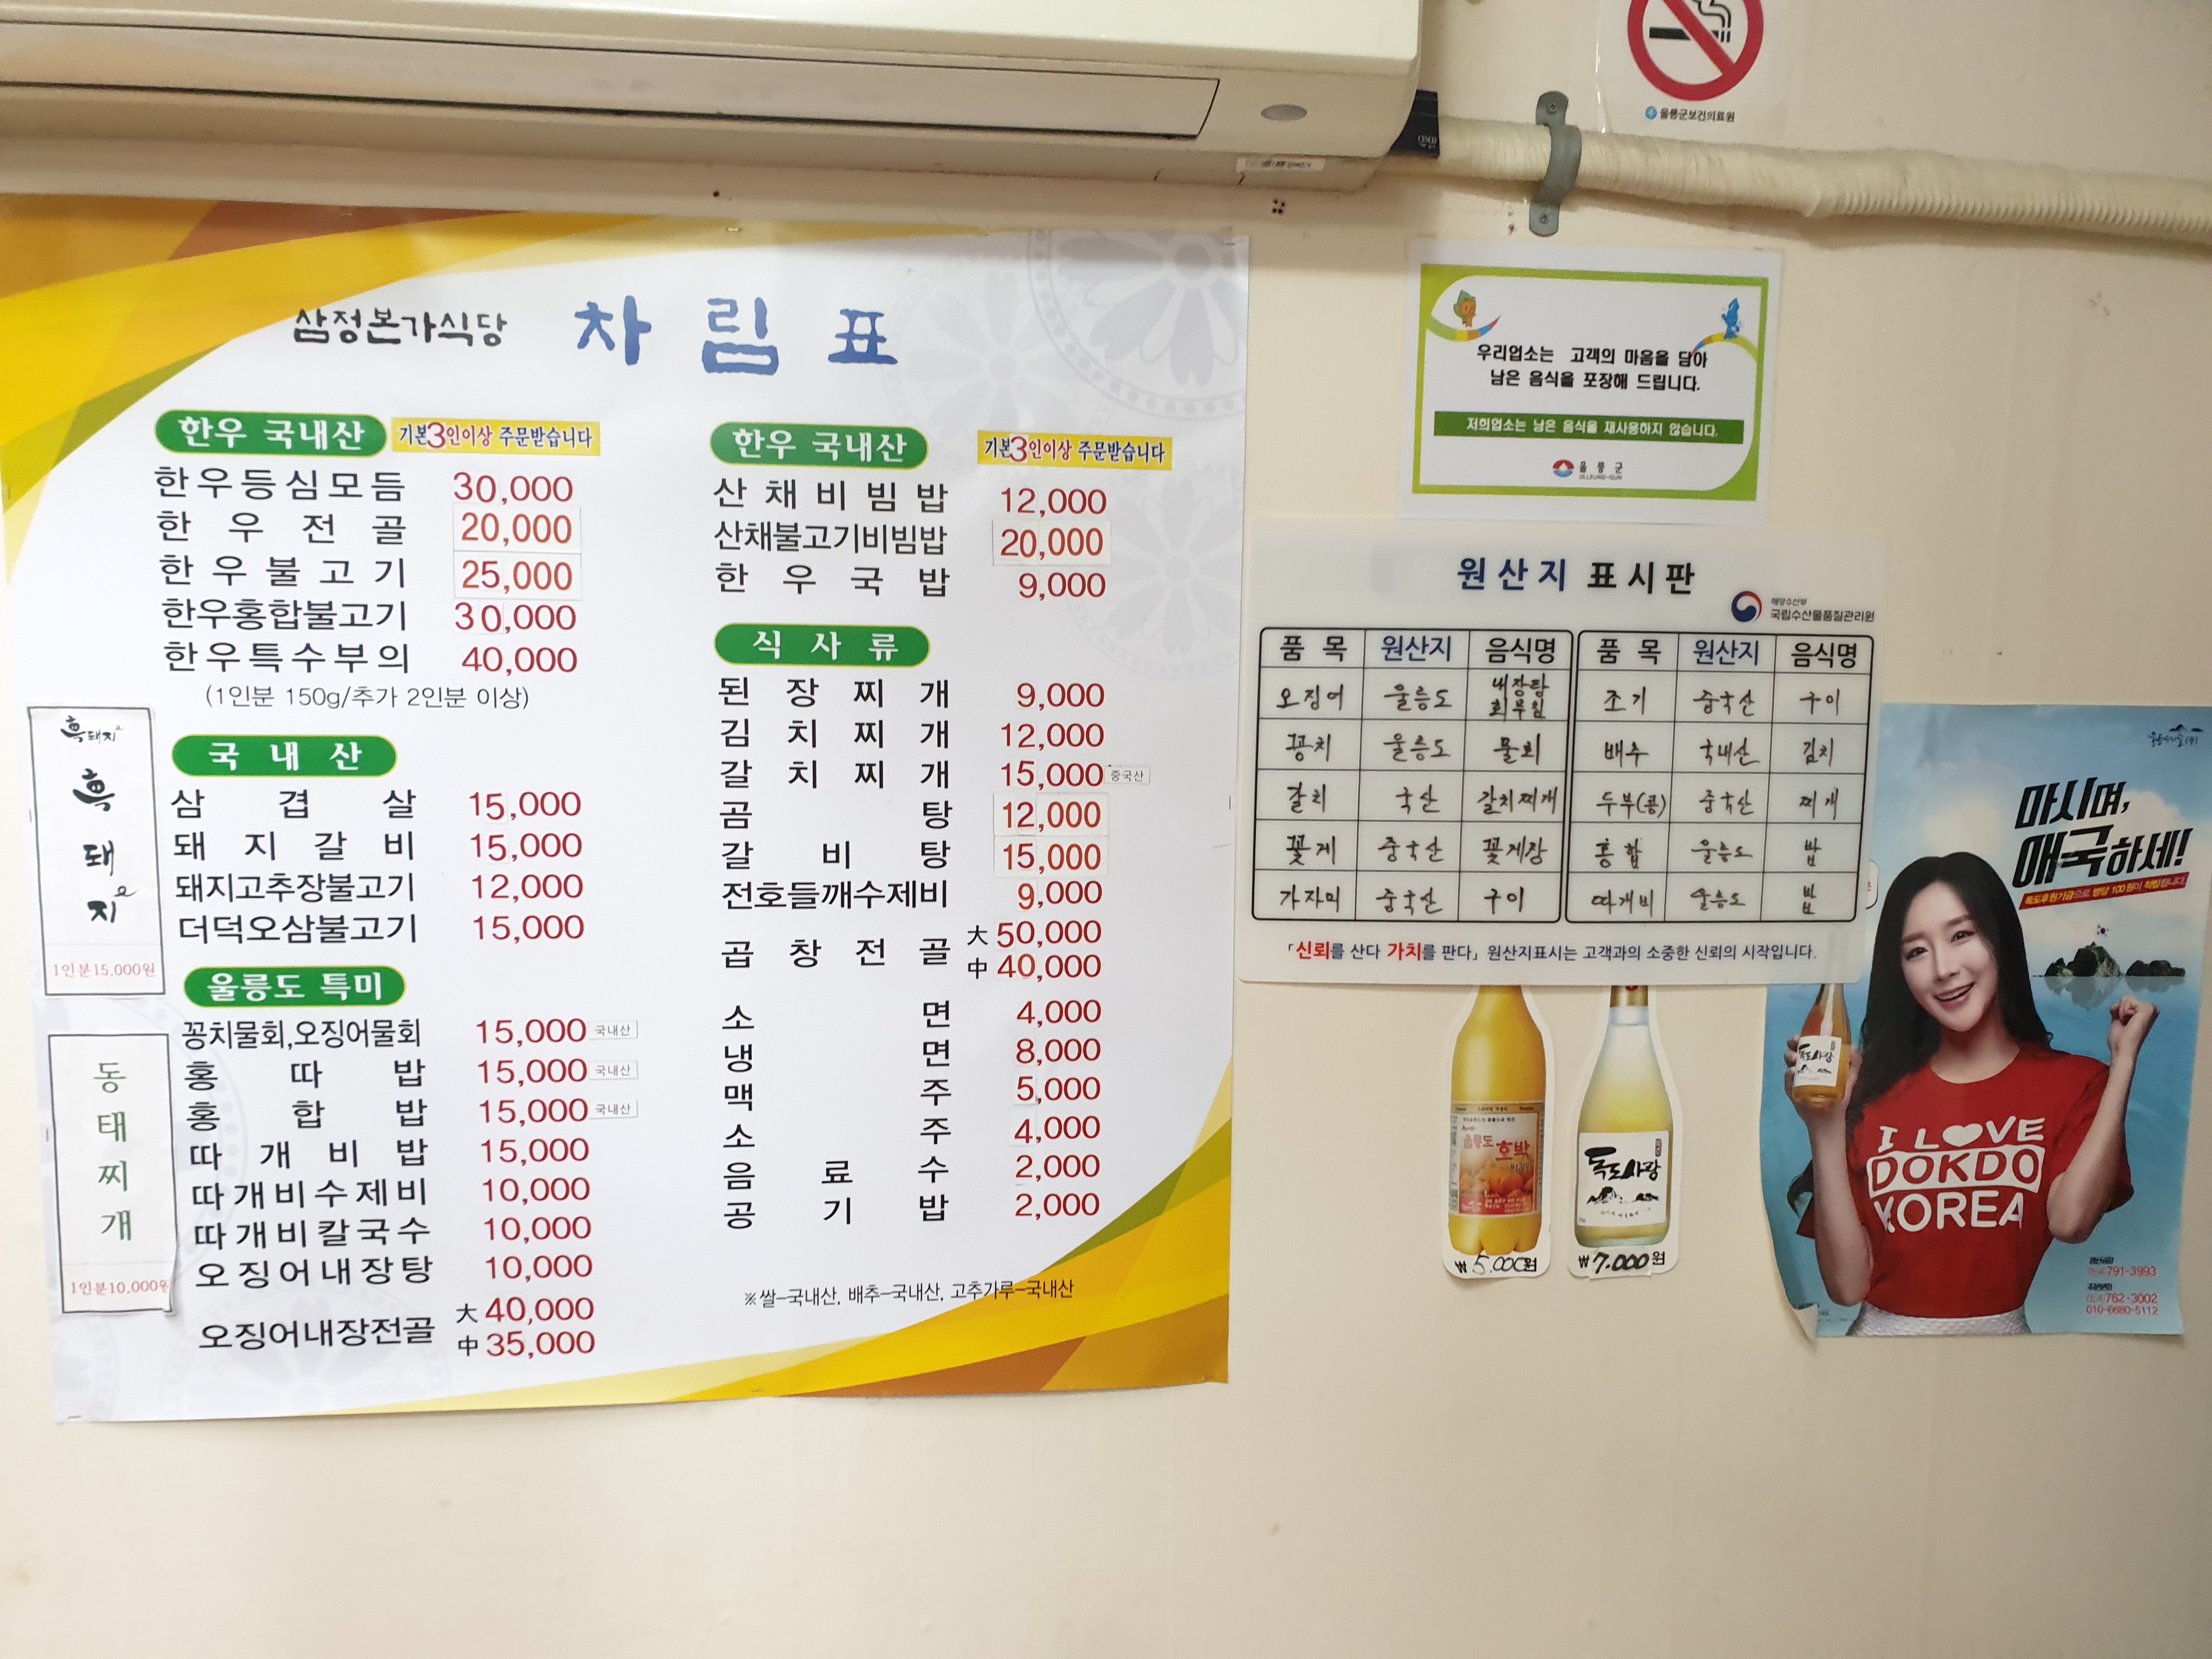 울릉군보건의료원
삼정본가식당 차림표
한우 국내산 기본3인이상 주문받습니다
한우등심모듬 30,000
한우전골 20,000
한우불고기 25,000
한우홍합불고기 30,000
한우특수부의 40,000
(1인분 150g/추가 2인분 이상)
흑돼지
흑돼지
1인분15,000원
국내산
삼겹살 15,000
돼지갈비 15,000
돼지고추장불고기 12,000
더덕오삼불고기 15,000
동태찌개
1인분10,000원
울릉도 특미
꽁치물회,오징어물회 15,000 국내산
홍따밥 15,000 국내산
홍합밥 15,000 국내산
따개비밥 15,000
따개비수제비 10,000
따개비칼국수 10,000
오징어내장탕 10,000
오징어내장전골 大 40,000
中 35,000
한우 국내산 기본3인이상 주문받습니다
산채비빔밥 12,000
산채불고기비빔밥 20,000
한우국밥 9,000
식사류
된장찌개 9,000
김치찌개 12,000
갈치찌개 15,000 중국산
곰탕 12,000
갈비탕 15,000
전호들깨수제비 9,000
곱창전골 大 50,000
中 40,000
소면 4,000
냉면 8,000
맥주 5,000
소주 4,000
음료수 2,000
공기밥 2,000
※쌀-국내산, 배추-국내산, 고추가루-국내산
우리업소는 고객의 마음을 담아
남은 음식을 포장해 드립니다.
저희업소는 남은 음식을 재사용하지 않습니다.
울릉군
ULLEUNG-GUN
원산지 표시판
해양수산부
국립수산물품질관리원
품목 원산지 음식명 품목 원산지 음식명
오징어 울릉도 내장탕 회무침 조기 중국산 구이
꽁치 울릉도 물회 배추 국내산 김치
갈치 국산 갈치찌개 두부(콩) 중국산 찌개
꽃게 중국산 꽃게장 홍합 울릉도 밥
가자미 중국산 구이 따개비 울릉도 밥
「신뢰를 산다 가치를 판다」 원산지표시는 고객과의 소중한 신뢰의 시작입니다.
울릉도
호박
₩5,000원
독도사랑
₩7.000원
마시며,
애국하세!
독도후원기금으로 병당 100원이 적립됩니다.
독도사랑
I LOVE
DOKDO
KOREA
791-3993
762-3002
010-6680-5112